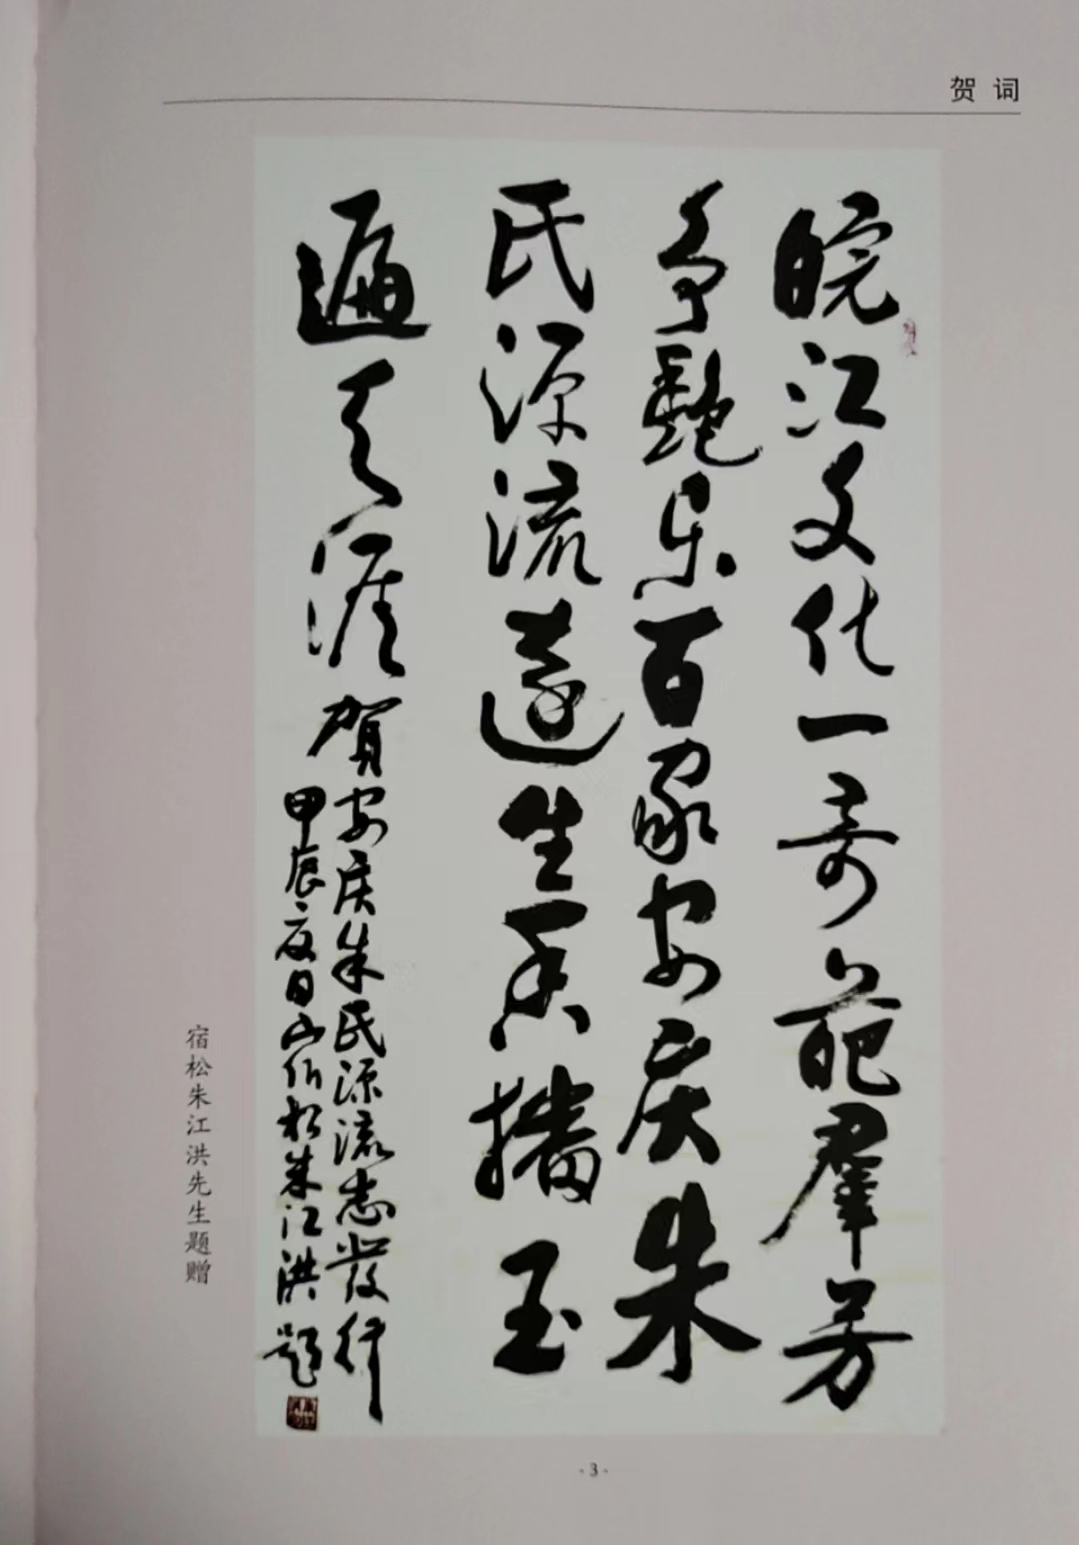 贺词
皖江文化一奇葩群芳
争艳乐百家安庆朱
氏源流远生香播玉
遍天涯
贺安庆朱氏源流志发行
甲辰夏日山伯松朱江洪题
宿松朱江洪先生题赠
- 3 -